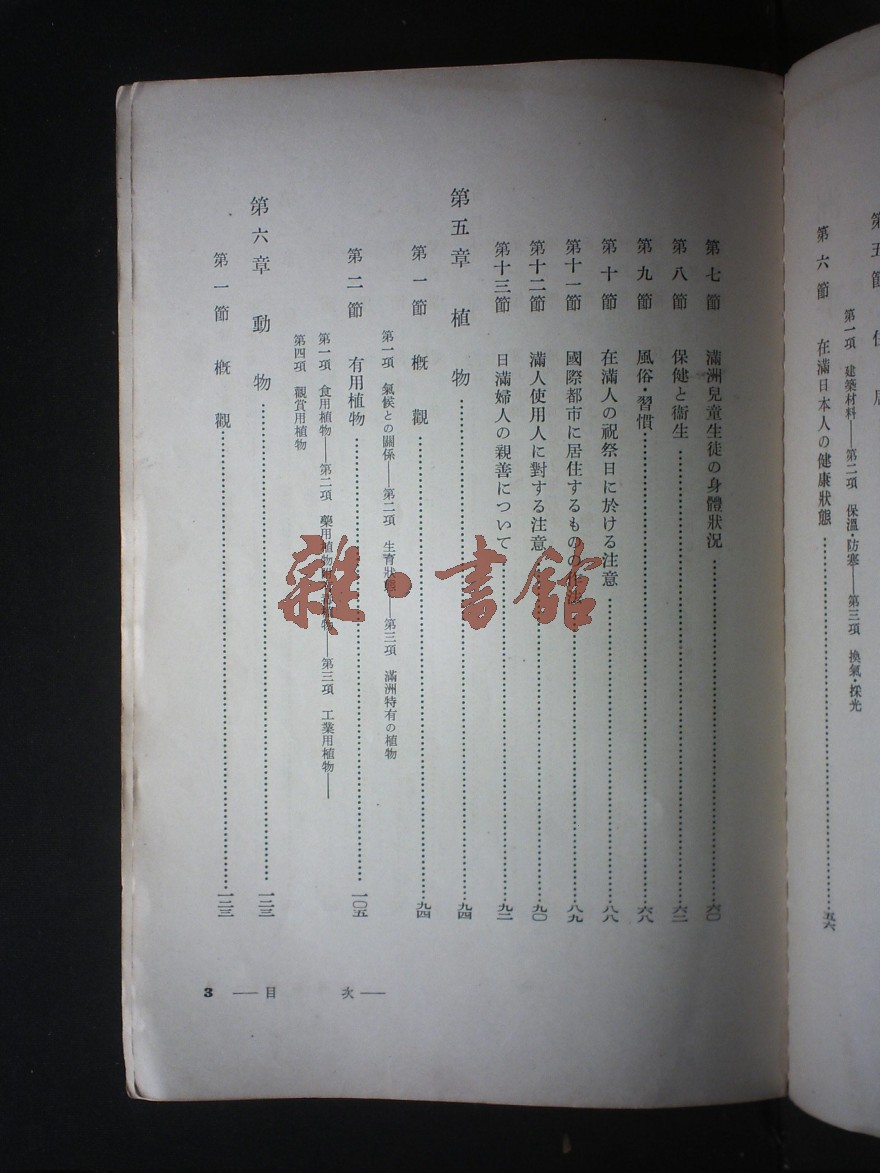 第五節 住居
第一項 建築材料――第二項 保溫・防寒――第三項 換氣・採光
第六節 在滿日本人の健康狀態 五六
第七節 滿洲兒童生徒の身體狀況 六〇
第八節 保健と衞生 六二
第九節 風俗・習慣 六八
第十節 在滿人の祝祭日に於ける注意 八八
第十一節 國際都市に居住するものの 八九
第十二節 滿人使用人に對する注意 九〇
第十三節 日滿婦人の親善について 九二
第五章 植物 九四
第一節 槪觀 九四
第一項 氣候との關係――第二項 生育狀――第三項 滿洲特有の植物
第二節 有用植物 一〇五
第一項 食用植物――第二項 藥用植物――第三項 工業用植物――
第四項 觀賞用植物
第六章 動物 一二三
第一節 槪觀 一二三
3 ――目 次――
雜・書館